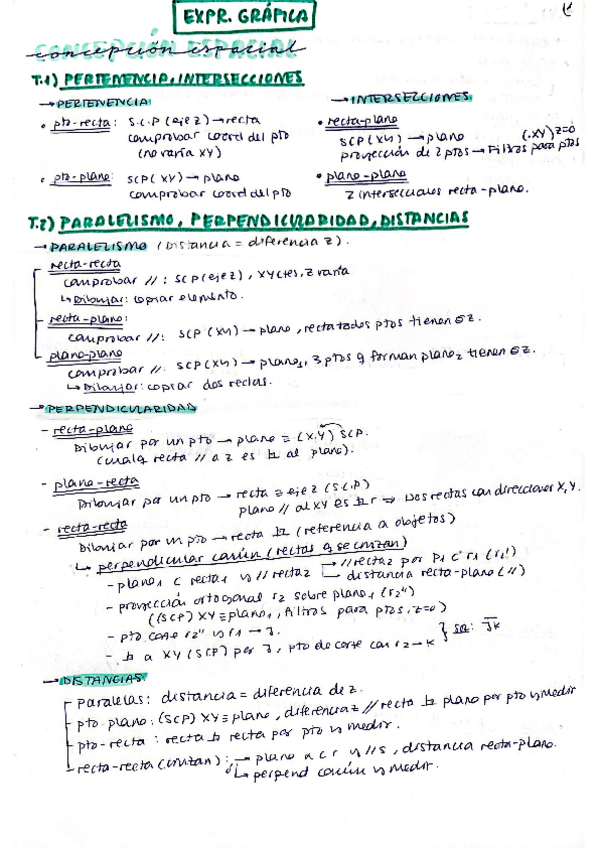 EXPR. GRÁFICA
CONCEPCIÓN ESPACIAL
concepción espacial
T.1) PERTENENCIA, INTERSECCIONES
→ PERTENENCIA
• pto-recta: S.C.P (eje Z) → recta
comprobar coord del pto
(no varía XY)
• pto-plano: SCP (XY) → plano
comprobar coord del pto
→ INTERSECCIONES
• recta-plano
SCP (XY) → plano (.XY) Z=0
proyección de 2 ptos → Filtros para ptos
• plano-plano
2 intersecciones recta-plano.
T.2) PARALELISMO, PERPENDICULARIDAD, DISTANCIAS
→ PARALELISMO (Distancia = diferencia Z).
recta-recta
comprobar //: SCP (eje Z), XY ctes, Z varía
↳ Dibujar: copiar elemento.
- recta-plano:
comprobar //: SCP (XY) → plano, recta todos ptos tienen = Z.
plano-plano
comprobar //: SCP (XY) → plano₁, 3 ptos q forman plano₂ tienen = Z.
↳ Dibujar: copiar dos rectas.
→ PERPENDICULARIDAD
- recta-plano
Dibujar por un pto → plano ≡ (X,Y) SCP.
(cualq recta // a Z es ⊥ al plano).
- plano-recta
Dibujar por un pto → recta ≡ eje Z (S.C.P)
plano // al XY es ⊥ r ⇒ Dos rectas con direcciones X, Y.
- recta-recta
Dibujar por un pto → recta ⊥ (referencia a objetos)
↳ perpendicular común (rectas q se cruzan)
- plano₁ ⊂ recta₁ y // recta₂ → // recta₂ por P₁ ⊂ r₁ (r₂')
↳ distancia recta-plano (//)
- proyección ortogonal r₂ sobre plano₁ (r₂'')
((SCP) XY ≡ plano₁, filtros para ptos, Z=0)
- pto corte r₂'' y r₁ → J.
- ⊥ a XY (SCP) por J, pto de corte con r₂ → K } sol: JK
→ DISTANCIAS
- paralelas: distancia = diferencia de Z.
- pto-plano: (SCP) XY ≡ plano, diferencia Z // recta ⊥ plano por pto y medir
- pto-recta: recta ⊥ recta por pto y medir.
- recta-recta (cruzan): → plano α ⊂ r y // s, distancia recta-plano.
↳ perpend común y medir.